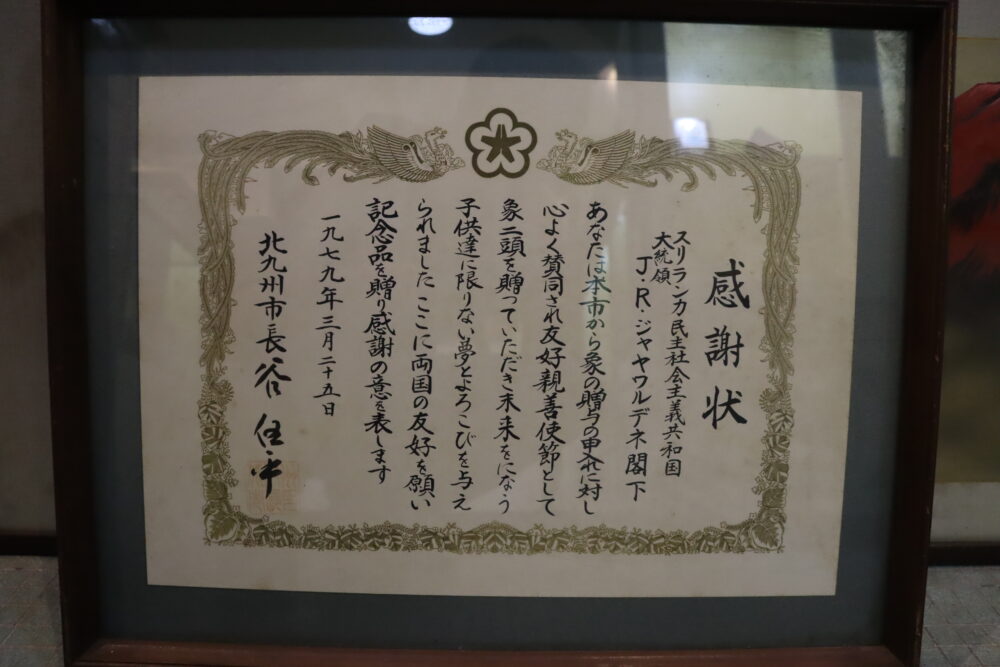 感謝状
スリランカ民主社会主義共和国
大統領
J・R・ジャヤワルデネ閣下
あなたは本市から象の贈与の申入れに対し
心よく賛同され友好親善使節として
象二頭を贈っていただき未来をになう
子供達に限りない夢とよろこびを与え
られました ここに両国の友好を願い
記念品を贈り感謝の意を表します
一九七九年三月二十五日
北九州市長 谷 伍平